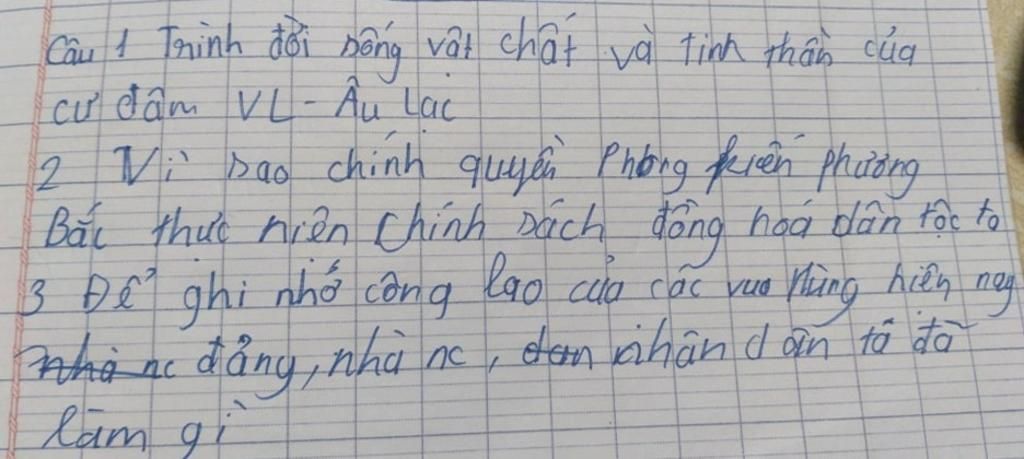 Câu 1 Trình đời sống vật chất và tinh thần của
cư dâm VL - Âu Lạc
2 Vì sao chính quyền Phong kiến phương
Bắc thực hiện chính sách đồng hoá dân tộc ta
3 Để ghi nhớ công lao của các vua Hùng hiện nay
nhà nc đảng, nhà nc, dan nhân dân ta đã
làm gì